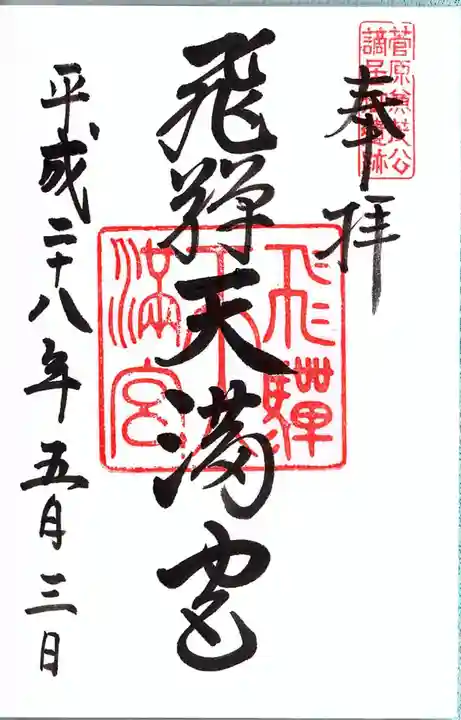 奉拝
菅原兼茂公
謫居
跡
飛騨天満宮
飛驒
天
満宮
平成二十八年五月三日